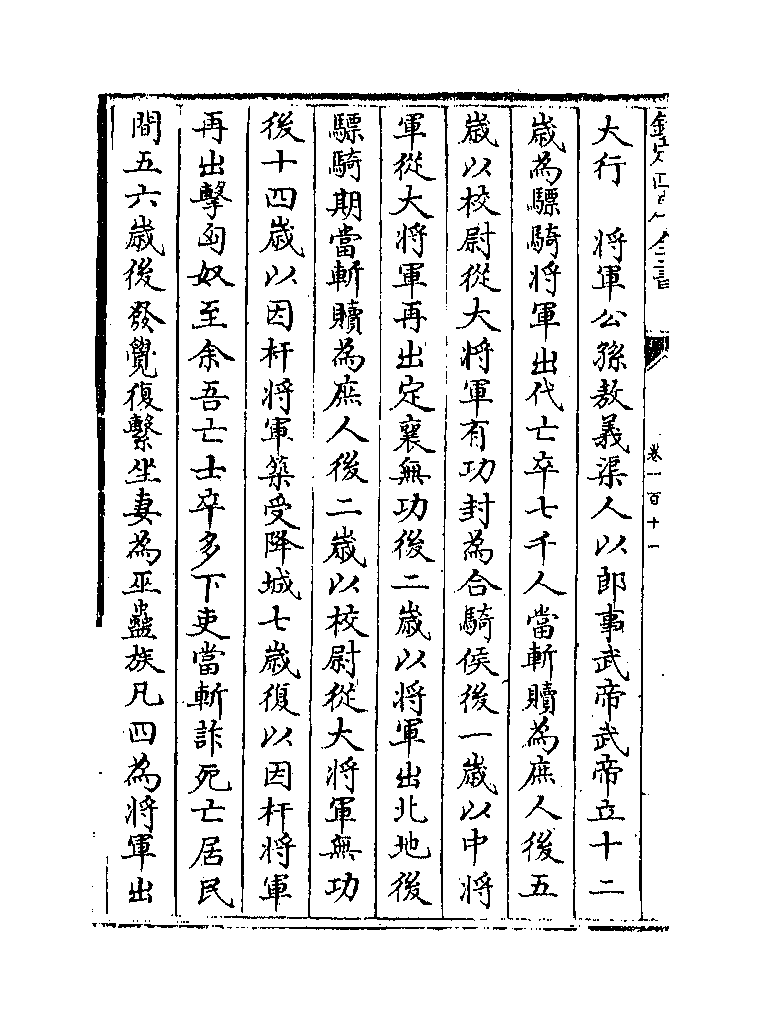 欽定四庫全書
卷一百十一
大行　將軍公孫敖義渠人以郎事武帝武帝立十二
歲為驃騎將軍出代亡卒七千人當斬贖為庶人後五
歲以校尉從大將軍有功封為合騎侯後一歲以中將
軍從大將軍再出定襄無功後二歲以將軍出北地後
驃騎期當斬贖為庶人後二歲以校尉從大將軍無功
後十四歲以因杆將軍築受降城七歲復以因杆將軍
再出擊匈奴至余吾亡士卒多下吏當斬詐死亡居民
間五六歲後發覺復繫坐妻為巫蠱族凡四為將軍出